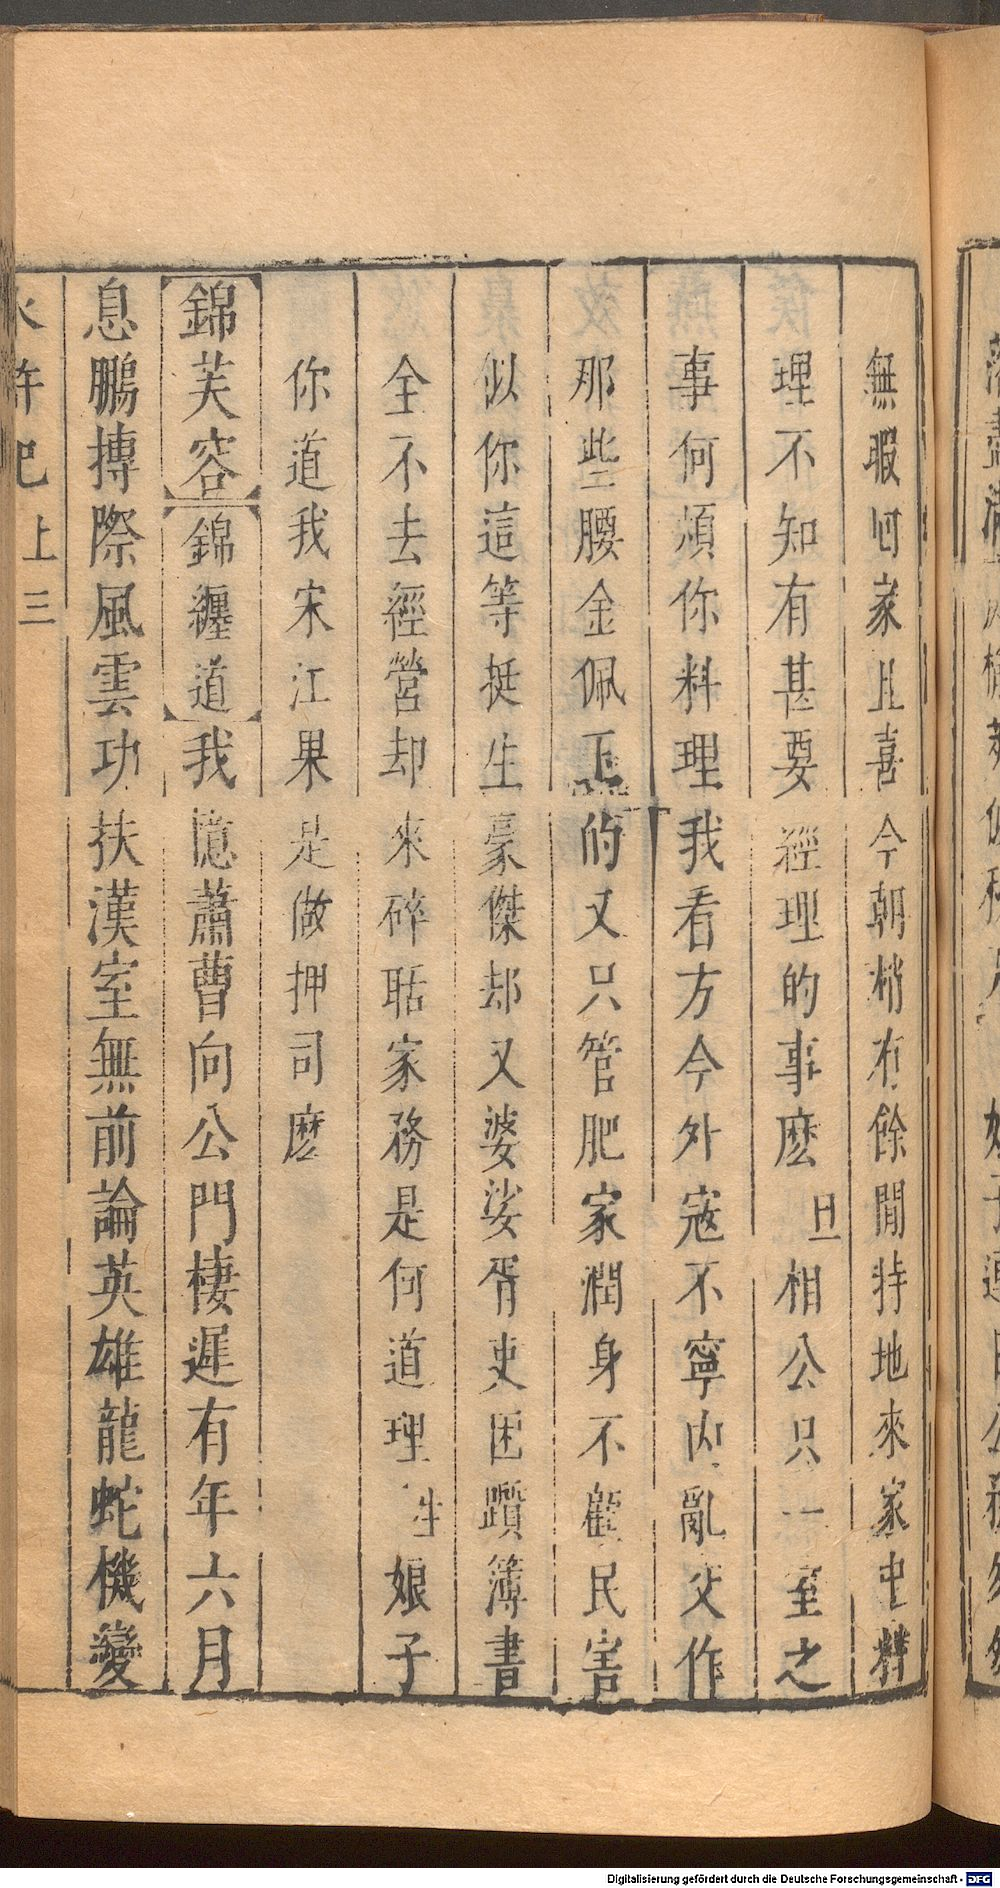 無暇回家且喜今朝稍有餘閒特地來家中料
理不知有甚要經理的事麽旦相公只一室之
事何煩你料理我看方今外寇不寧內亂交作
那些腰金佩玉的又只管肥家潤身不顧民害
似你這等挺生豪傑却又婆娑胥吏困躓簿書
全不去經營却來碎聒家務是何道理生娘子
你道我宋江果是做押司麽
錦芙容錦纏道我憶蕭曹向公門棲遲有年六月
息鵬摶際風雲功扶漢室無前論英雄龍蛇機變
水許巳上三
Digitalisierung gefördert durch die Deutsche Forschungsgemeinschaft - DFG